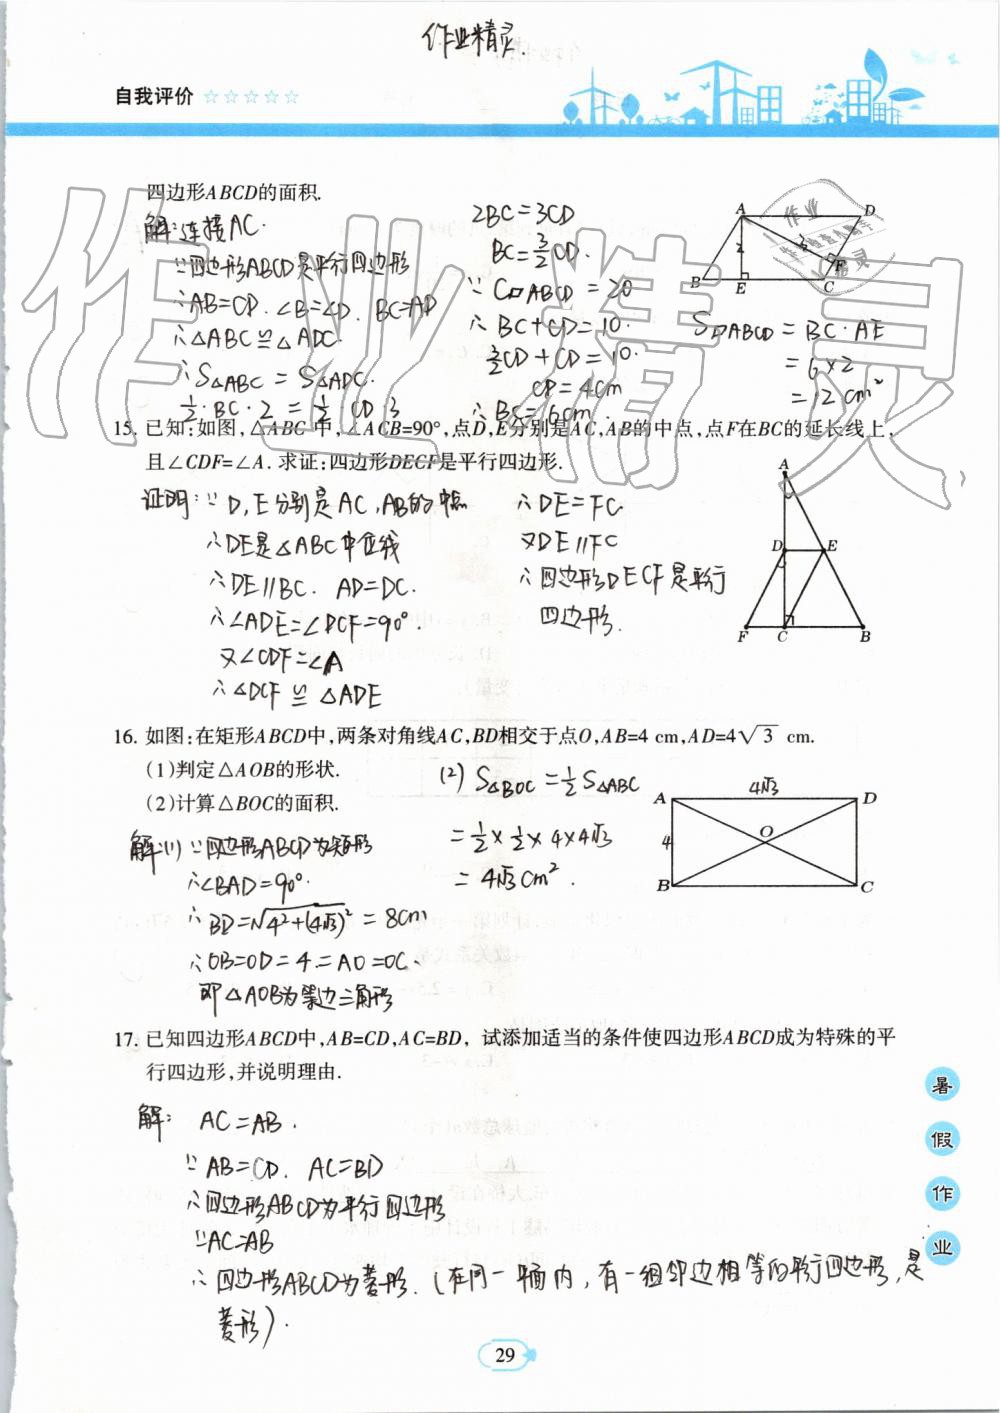 作业精灵.
自我评价 ☆☆☆☆☆
四边形ABCD的面积.
解:连接AC.
∵四边形ABCD是平行四边形
∴AB=CD. ∠B=∠D. BC=AD
∴△ABC≌△ADC.
∴S△ABC = S△ADC.
½·BC·2 = ½·CD·3
2BC=3CD
BC=3/2 CD.
∵ C▱ABCD = 20
∴ BC+CD=10.
3/2CD+CD=10.
CD=4cm
∴BC=6cm.
S▱ABCD = BC·AE
= 6×2
= 12 cm²
A
D
2
3
F
B
E
C
作业
精灵
15. 已知:如图,△ABC中,∠ACB=90°,点D,E分别是AC,AB的中点,点F在BC的延长线上,
且∠CDF=∠A. 求证:四边形DECF是平行四边形.
证明:∵D,E分别是AC,AB的中点
∴DE是△ABC中位线
∴DE∥BC. AD=DC.
∴∠ADE=∠DCF=90°.
又∠CDF=∠A
∴△DCF ≌ △ADE
∴DE=FC
又DE∥FC
∴四边形DECF是平行
四边形.
A
D
E
F
C
B
16. 如图:在矩形ABCD中,两条对角线AC,BD相交于点O,AB=4 cm,AD=4√3 cm.
(1)判定△AOB的形状.
(2)计算△BOC的面积.
解:(1)∵四边形ABCD为矩形
∴∠BAD=90°.
∴BD=√4²+(4√3)² = 8cm
∴OB=OD=4=AO=OC.
即△AOB为等边三角形
(2) S△BOC=½S△ABC
=½×½×4×4√3
= 4√3 cm².
4√3
A
D
4
O
B
C
17. 已知四边形ABCD中,AB=CD,AC=BD, 试添加适当的条件使四边形ABCD成为特殊的平
行四边形,并说明理由.
解: AC=AB.
∵AB=CD. AC=BD
∴四边形ABCD为平行四边形
∵AC=AB
∴四边形ABCD为菱形.(在同一平面内,有一组邻边相等的平行四边形,是
菱形).
暑
假
作
业
29
作业精灵